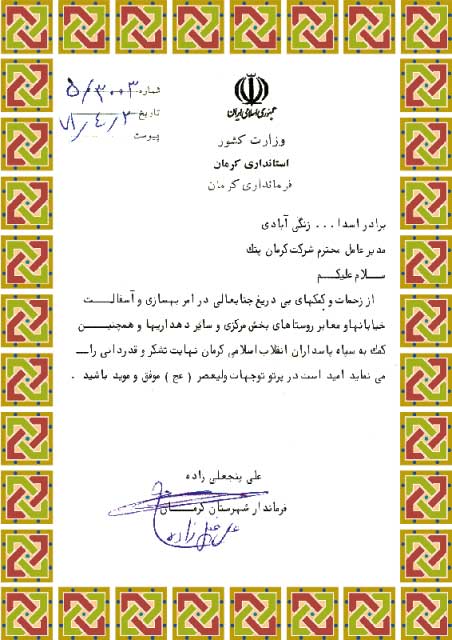 شماره ۵/۳۰۰۳
تاریخ ۷۱/۴/۲
پیوست
جمهوری اسلامی ایران
وزارت کشور
استانداری کرمان
فرمانداری کرمان
برادر اسدا... زنگی آبادی
مدیر عامل محترم شرکت کرمان پتک
سلام علیکم
از زحمات و کمکهای بی دریغ جنابعالی در امر بهسازی و آسفالت
خیابانها و معابر روستاهای بخش مرکزی و سایر دهداریها و همچنین
کمک به سپاه پاسداران انقلاب اسلامی کرمان نهایت تشکر و قدردانی را
می نماید امید است در پرتو توجهات ولیعصر ( عج ) موفق و موید باشید .
علی پنجعلی زاده
فرماندار شهرستان کرمان